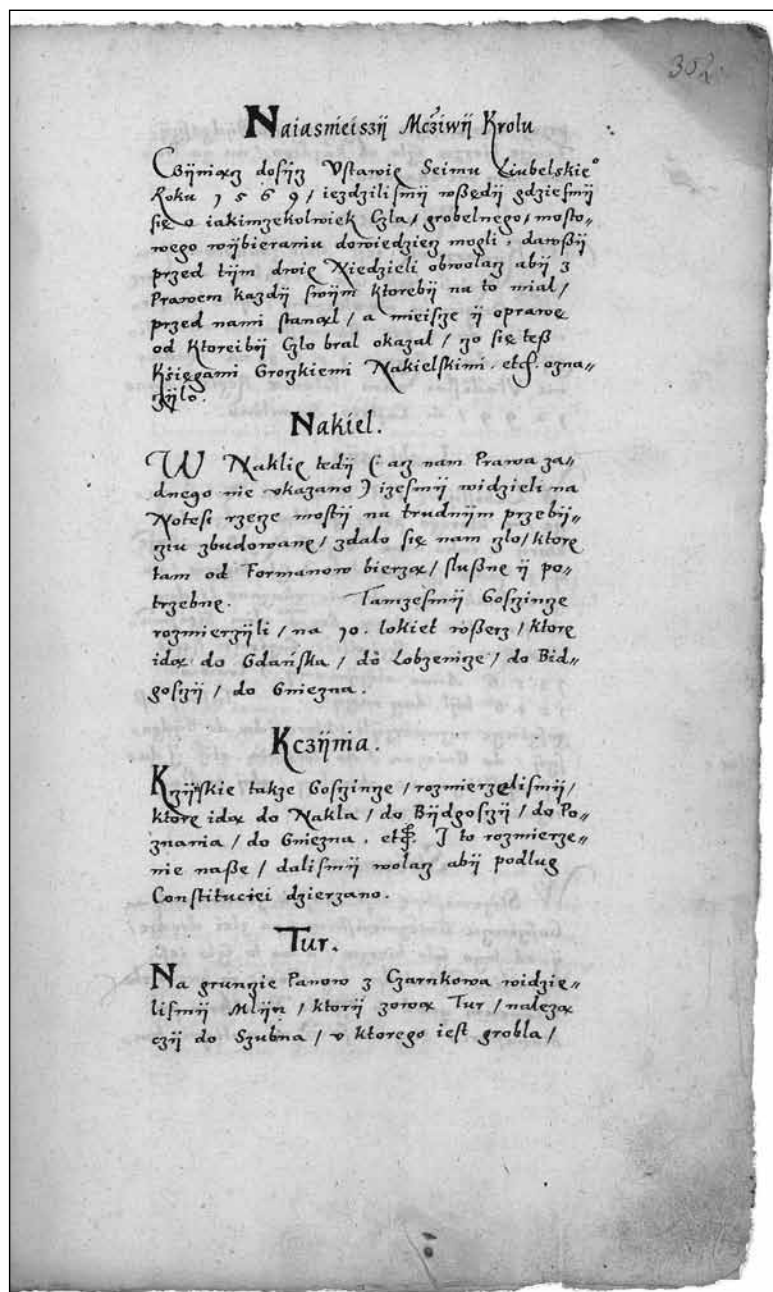 302.
Naiasnieiszÿ Mcżiwÿ Krolu
Czÿniąncz dosÿcz Vstawię Seimu Liubelskie°
Roku 1569 / iezdzilismÿ wßędÿ gdziesmÿ
się o iakimzekolwiek Czla / grobelnego / mosto„
wego wÿbieraniu dowiedziecz mogli, dawßÿ
przed tÿm dwię Niedzieli obwolacz abÿ z
Prawem kazdÿ swÿm ktorebÿ na to mial /
przed nami stanąl / a mieiscze ÿ oprawę
od ktoreibÿ Czlo bral okazal / czo się teß
Księgami Groczkiemi Nakielskimi. etc. ozna„
czÿlo.
Nakiel.
W Naklię tedÿ ( acz nam Prawa za„
dnego nie okazano ) izesmÿ widzieli na
Notesi rzecze mostÿ na trudnÿm przebÿ„
cziu zbudowanę / zdalo się nam czlo / ktorę
tam od Formanow bierzą / slußnę ÿ po„
trzebnę. Tamzesmÿ Gosczincze
rozmierzÿli / na 10. lokiet wßerz / ktorę
idą do Gdańska / do Lobzenicze / do Bid„
gosczÿ / do Gniezna.
Kczÿnia.
Kczÿńskie takze Gosczincze / rozmierzÿlismÿ /
ktorę idą do Nakla / do Bÿdgosczÿ / do Po„
znania / do Gniezna. etc. I to rozmierze„
nie naße / dalismÿ wolacz abÿ podlug
Constituciei dzierzano.
Tur.
Na grunczie Panow z Czarnkowa widzie„
lismÿ Mlÿn / ktorÿ zową Tur / nalezą
czÿ do Szubna / v ktorego iest grobla /